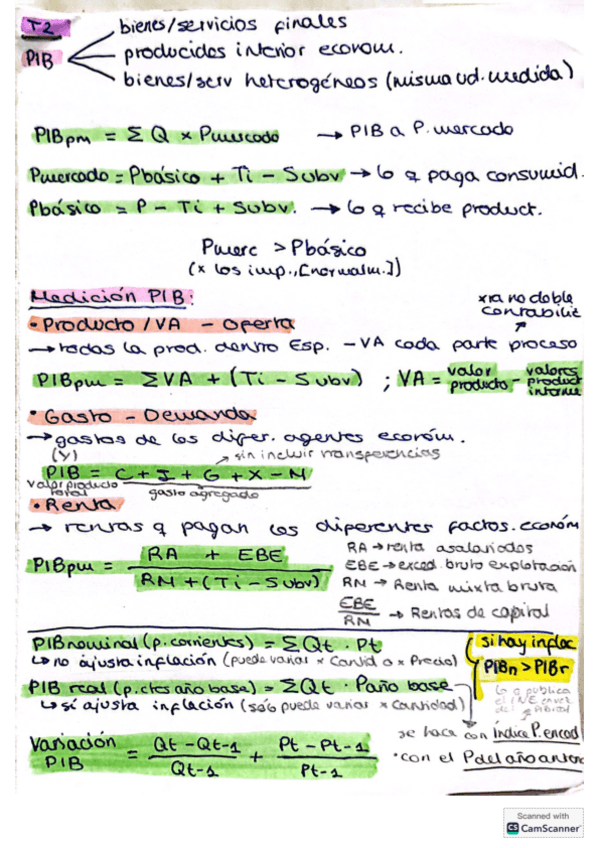 T2
PIB
bienes/servicios finales
producidos interior econom.
bienes/serv heterogéneos (misma ud. medida)
PIBpm = Σ Q × Pmercado → PIB a P. mercado
Pmercado = Pbásico + Ti - Subv → lo q paga consumid.
Pbásico = P - Ti + Subv. → lo q recibe product.
Pmerc > Pbásico
(x los imp., [normalm.])
Medición PIB:
• Producto / VA - Oferta
xra no doble
contabiliz
→ todas la prod. dentro Esp. - VA cada parte proceso
PIBpm = ΣVA + (Ti - Subv) ; VA = valor producto - valores product interme
• Gasto - Demanda
→ gastos de los difer. agentes económ.
(Y) → sin incluir transferencias
PIB = C + I + G + X - M
valor producto total
gasto agregado
• Renta
→ rentas q pagan los diferentes factos. económ
PIBpm = RA + EBE / RM + (Ti - Subv)
RA → renta asalariados
EBE → exced. bruto explotación
RM → Renta mixta bruta
EBE / RM → Rentas de capital
PIBnominal (p. corrientes) = ΣQt · Pt
↳ no ajusta inflación (puede variar x Cantid o x Precio)
si hay inflac
PIBn > PIBr
PIB real (p. ctes año base) = ΣQt · Paño base
↳ sí ajusta inflación (sólo puede variar x Cantidad)
lo q publica
el INE
se hace con Índice P. encad
• con el P del año anter
Variación PIB = Qt - Qt-1 / Qt-1 + Pt - Pt-1 / Pt-1
Scanned with
CS CamScanner